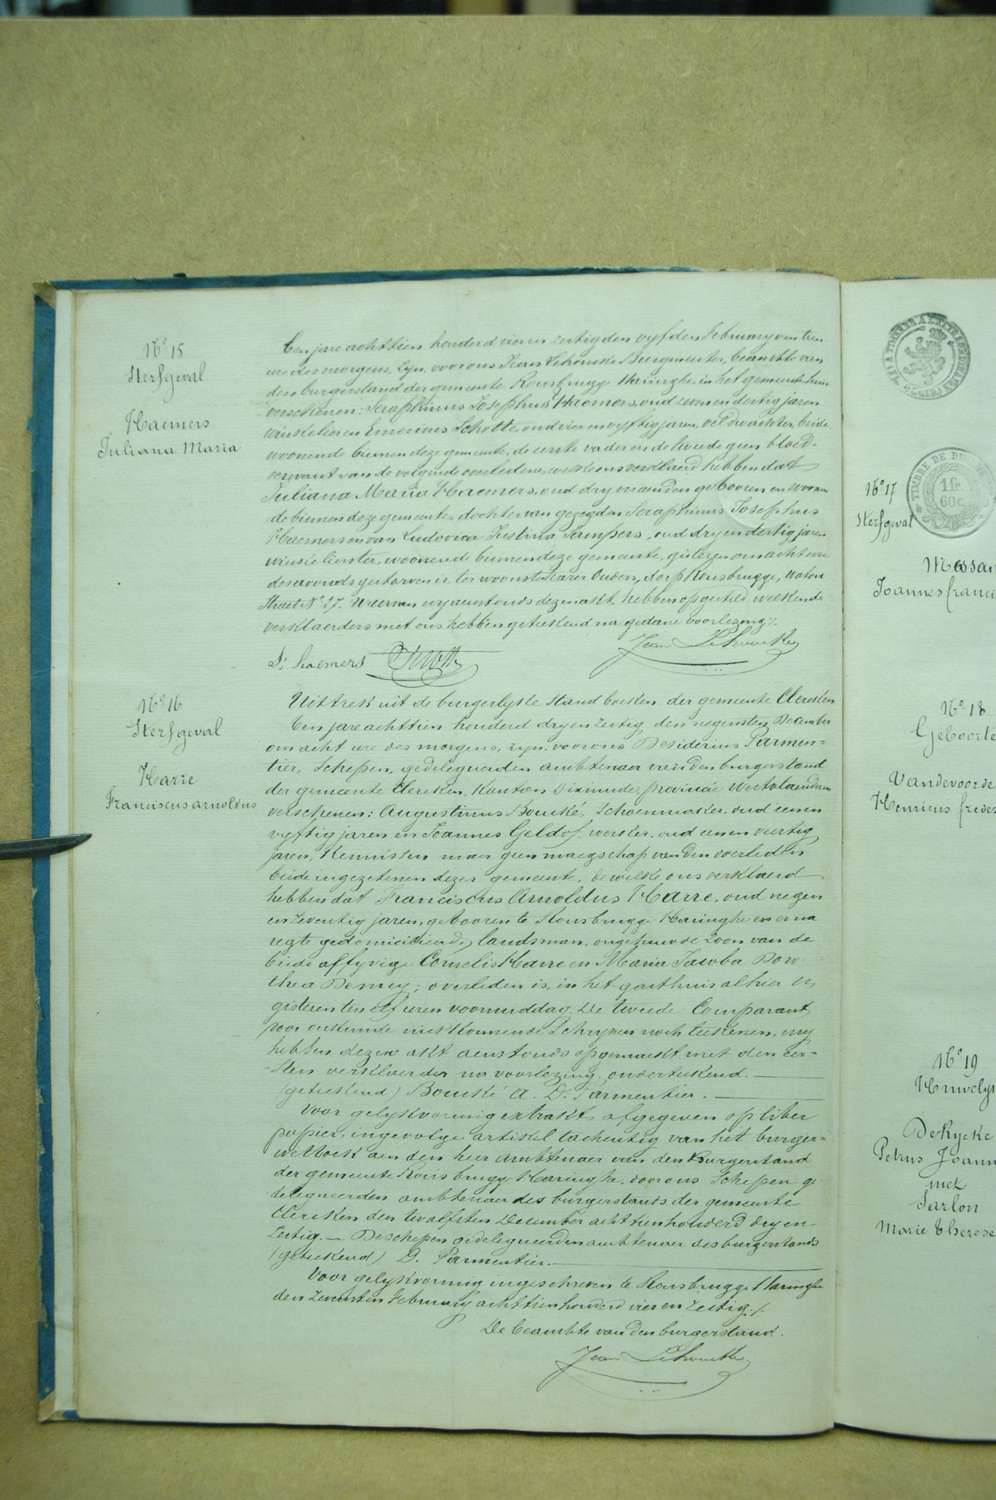 N.º 15
Sterfgeval
Haemers
Juliana Maria
Een jare achttien honderd vier en zestig den vyfden February om tien
ure des morgens, zyn voor ons Jean Burgmeester, beambte van
den burgerstand der gemeente Rousbrugge Haringhe in het gemeente huis
verschenen: Seraphinus Josephus Haemers, oud twee en dertig jaren
winkelier en Schotte, oud vier en vyftig jaren, veldwachter, beide
woonende binnen deze gemeente, de eerste vader en de tweede geen bloed-
verwant van de volgende overledene, welke ons verklaerd hebben dat
Juliana Maria Haemers, oud dry maenden geboren en woonen
de binnen deze gemeente, dochter van gezegden Seraphinus Josephus
Haemers en van Ludovica Justina Sampers, oud dry en dertig jaren
winkelierster, woonende binnen deze gemeente, gisteren om acht ure
des avonds gestorven is ter woonste harer Ouders, dorp Rousbrugge,
Straet N.º 27. Waervan wy aenstonds deze makt hebben opgesteld welke de
verklaerders met ons hebben geteekend na gedane voorlezing.
S. haemers
N.º 16
Sterfgeval
Harre
Franciscus arnoldus
Uittreksel uit de burgerlyke Stand boeken der gemeente Clercken
Een jare achttien honderd dry en zestig den negensten December
om acht ure des morgens, zyn voor ons Desiderius Parmen-
tier, Schepen, gedelegueerden ambtenaer van den burgerstand
der gemeente Clercken, Kantons Dixmude, provincie Westvlaenderen
verschenen: Augustinus Bouské, Schoenmaker, oud eenen
vyftig jaren en Joannes Geldof, werker, oud een en veertig
jaren, Kennissen maer geen maegschap van den overleden
beide ingezetenen dezer gemeente, de welke ons verklaerd
hebben dat Franciscus Arnoldus Harre, oud negen
en zeventig jaren, geboren te Rousbrugge Haringhe en erna
regts gedomicilieerd, landsman, ongehuwde zoon van de
beide aflyvige Cornelis Harre en Maria Jacoba Doro-
thea Denrey; overleden is, in het gasthuis alhier op
gisteren ten elf uren voormiddag. De tweede Comparant,
voor oorkonde niet konnende Schryven noch teekenen, wy
hebben dezen akt aenstonds opgemaekt met den eer-
sten verklaerder na voorlezing onderteekend.
(geteekend) Bouské A. D. Parmentier.
Voor gelykvormig extrakt afgegeven op liber
papier, ingevolge artikel tachentig van het burger-
wetboek aen den heer ambtenaer van den Burgerstand
der gemeente Rousbrugge Haringhe, door ons Schepen ge-
delegueerden ambtenaer des burgerstands der gemeente
Clercken den twalfsten December achttienhonderd dry en
Zestig. De Schepen gedelegueerden ambtenaer des burgerstands
(geteekend) D. Parmentier.
Voor gelykvormig ingeschreven te Rousbrugge Haringhe
den zevensten February achttienhonderd vier en zestig./.
De beambte van den burgerstand.
TIMBRE DE
1 fr.
60 c.
N.º 17
Sterfgeval
Joannes franci
N.º 18
Geboorte
Vandevoorde
Henricus frede
N.º 19
Huwelyk
DeRycke
Petrus Joann
met
Sarlon
Marie Therese